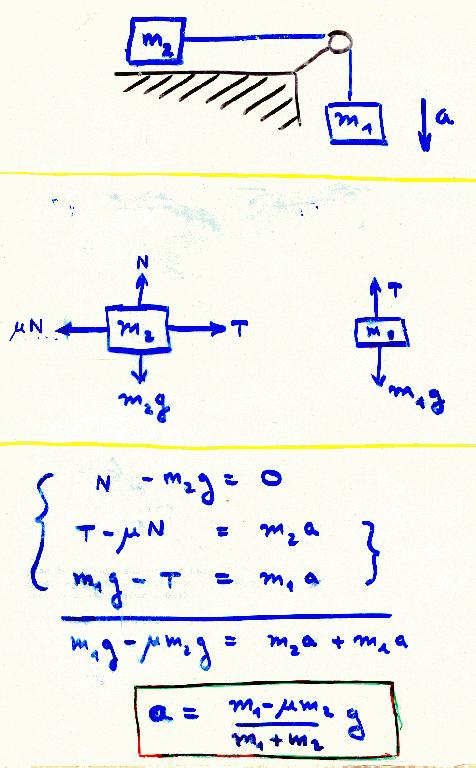 m₂
m₁
a
N
μN m₂ T
m₂g
T
m₁
m₁g
N - m₂g = 0
T - μN = m₂a
m₁g - T = m₁a
m₁g - μm₂g = m₂a + m₁a
a = (m₁ - μm₂)/(m₁ + m₂) g